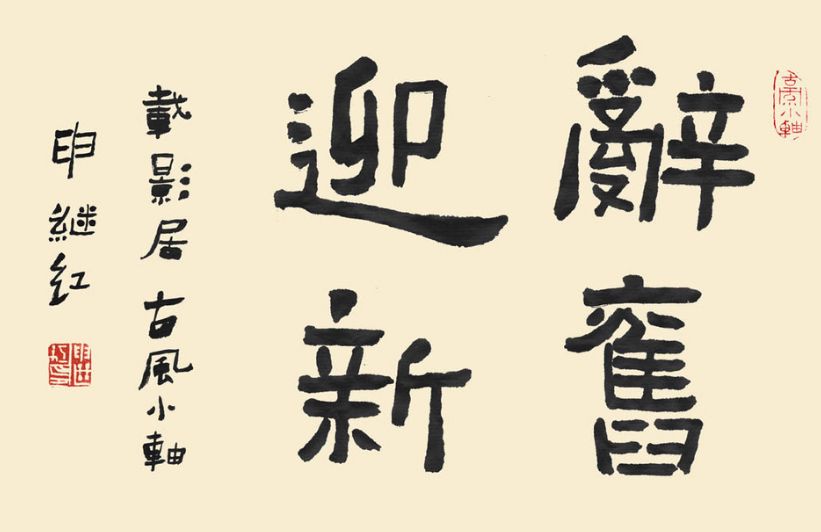 辭舊
迎新
載影居古風小軸
申继红